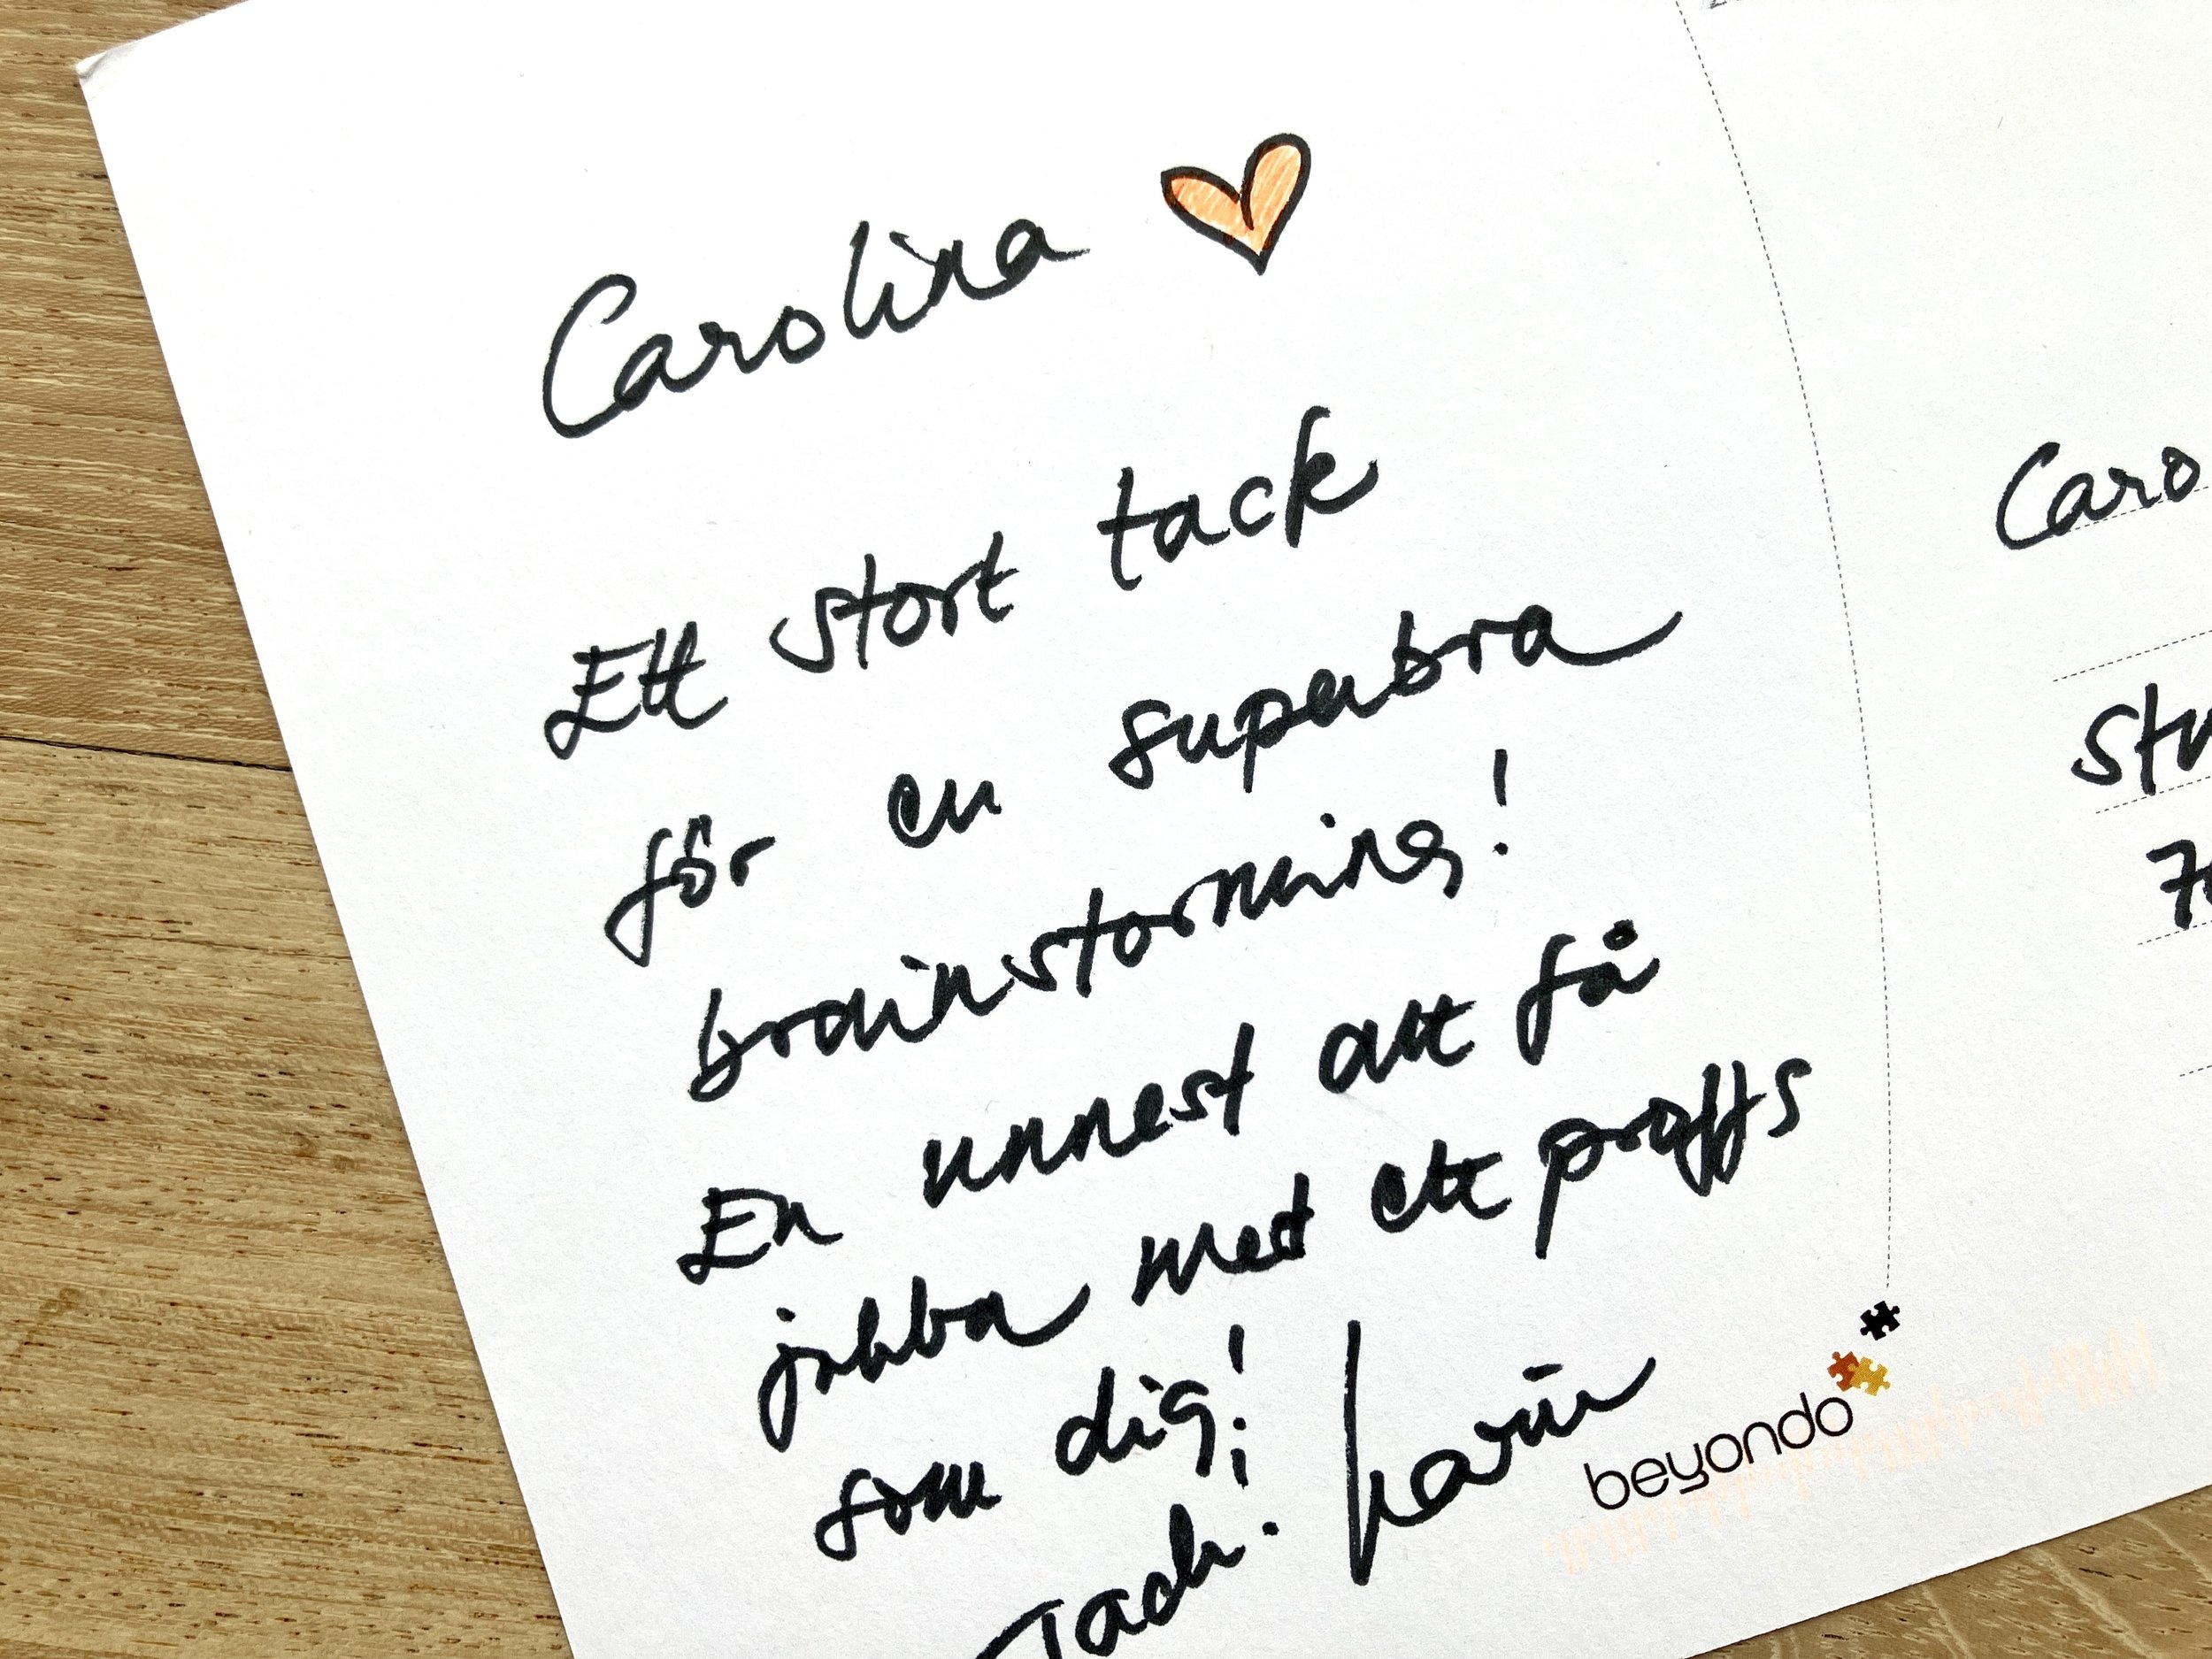 Carolina
Ett stort tack
för en superbra
brainstorming!
En ynnest att få
jobba med ett proffs
som dig!
Tack. Karin
beyondo
Caro